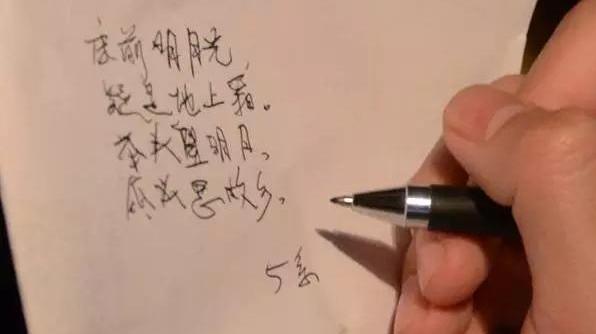 床前明月光,
疑是地上霜。
举头望明月,
低头思故乡。
5